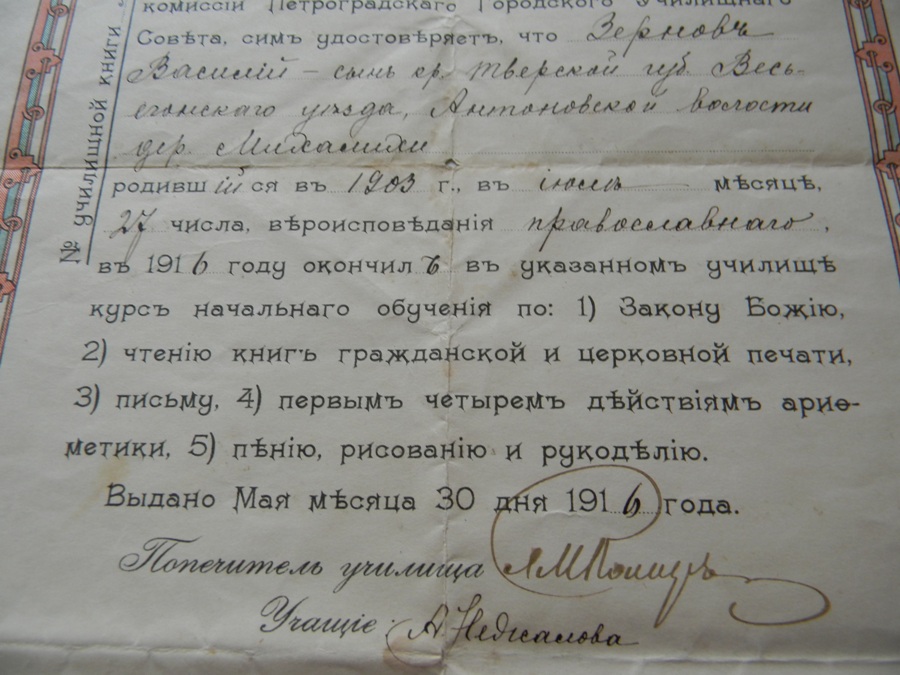 комиссіи Петроградскаго Городского Училищнаго
Совѣта, симъ удостовѣряетъ, что Зерновъ
Василій – сынъ кр. Тверской губ. Весь-
егонскаго уѣзда, Антоновской волости
дер. Михалихи
родившійся въ 1903 г., въ іюлѣ мѣсяцѣ,
27 числа, вѣроисповѣданія православнаго,
въ 1916 году окончилъ въ указанномъ училищѣ
курсъ начальнаго обученія по: 1) Закону Божію,
2) чтенію книгъ гражданской и церковной печати,
3) письму, 4) первымъ четыремъ дѣйствіямъ ариѳ-
метики, 5) пѣнію, рисованію и рукодѣлію.
Выдано Мая мѣсяца 30 дня 1916 года.
Попечитель училища
Учащіе: А.
№ училищной книги